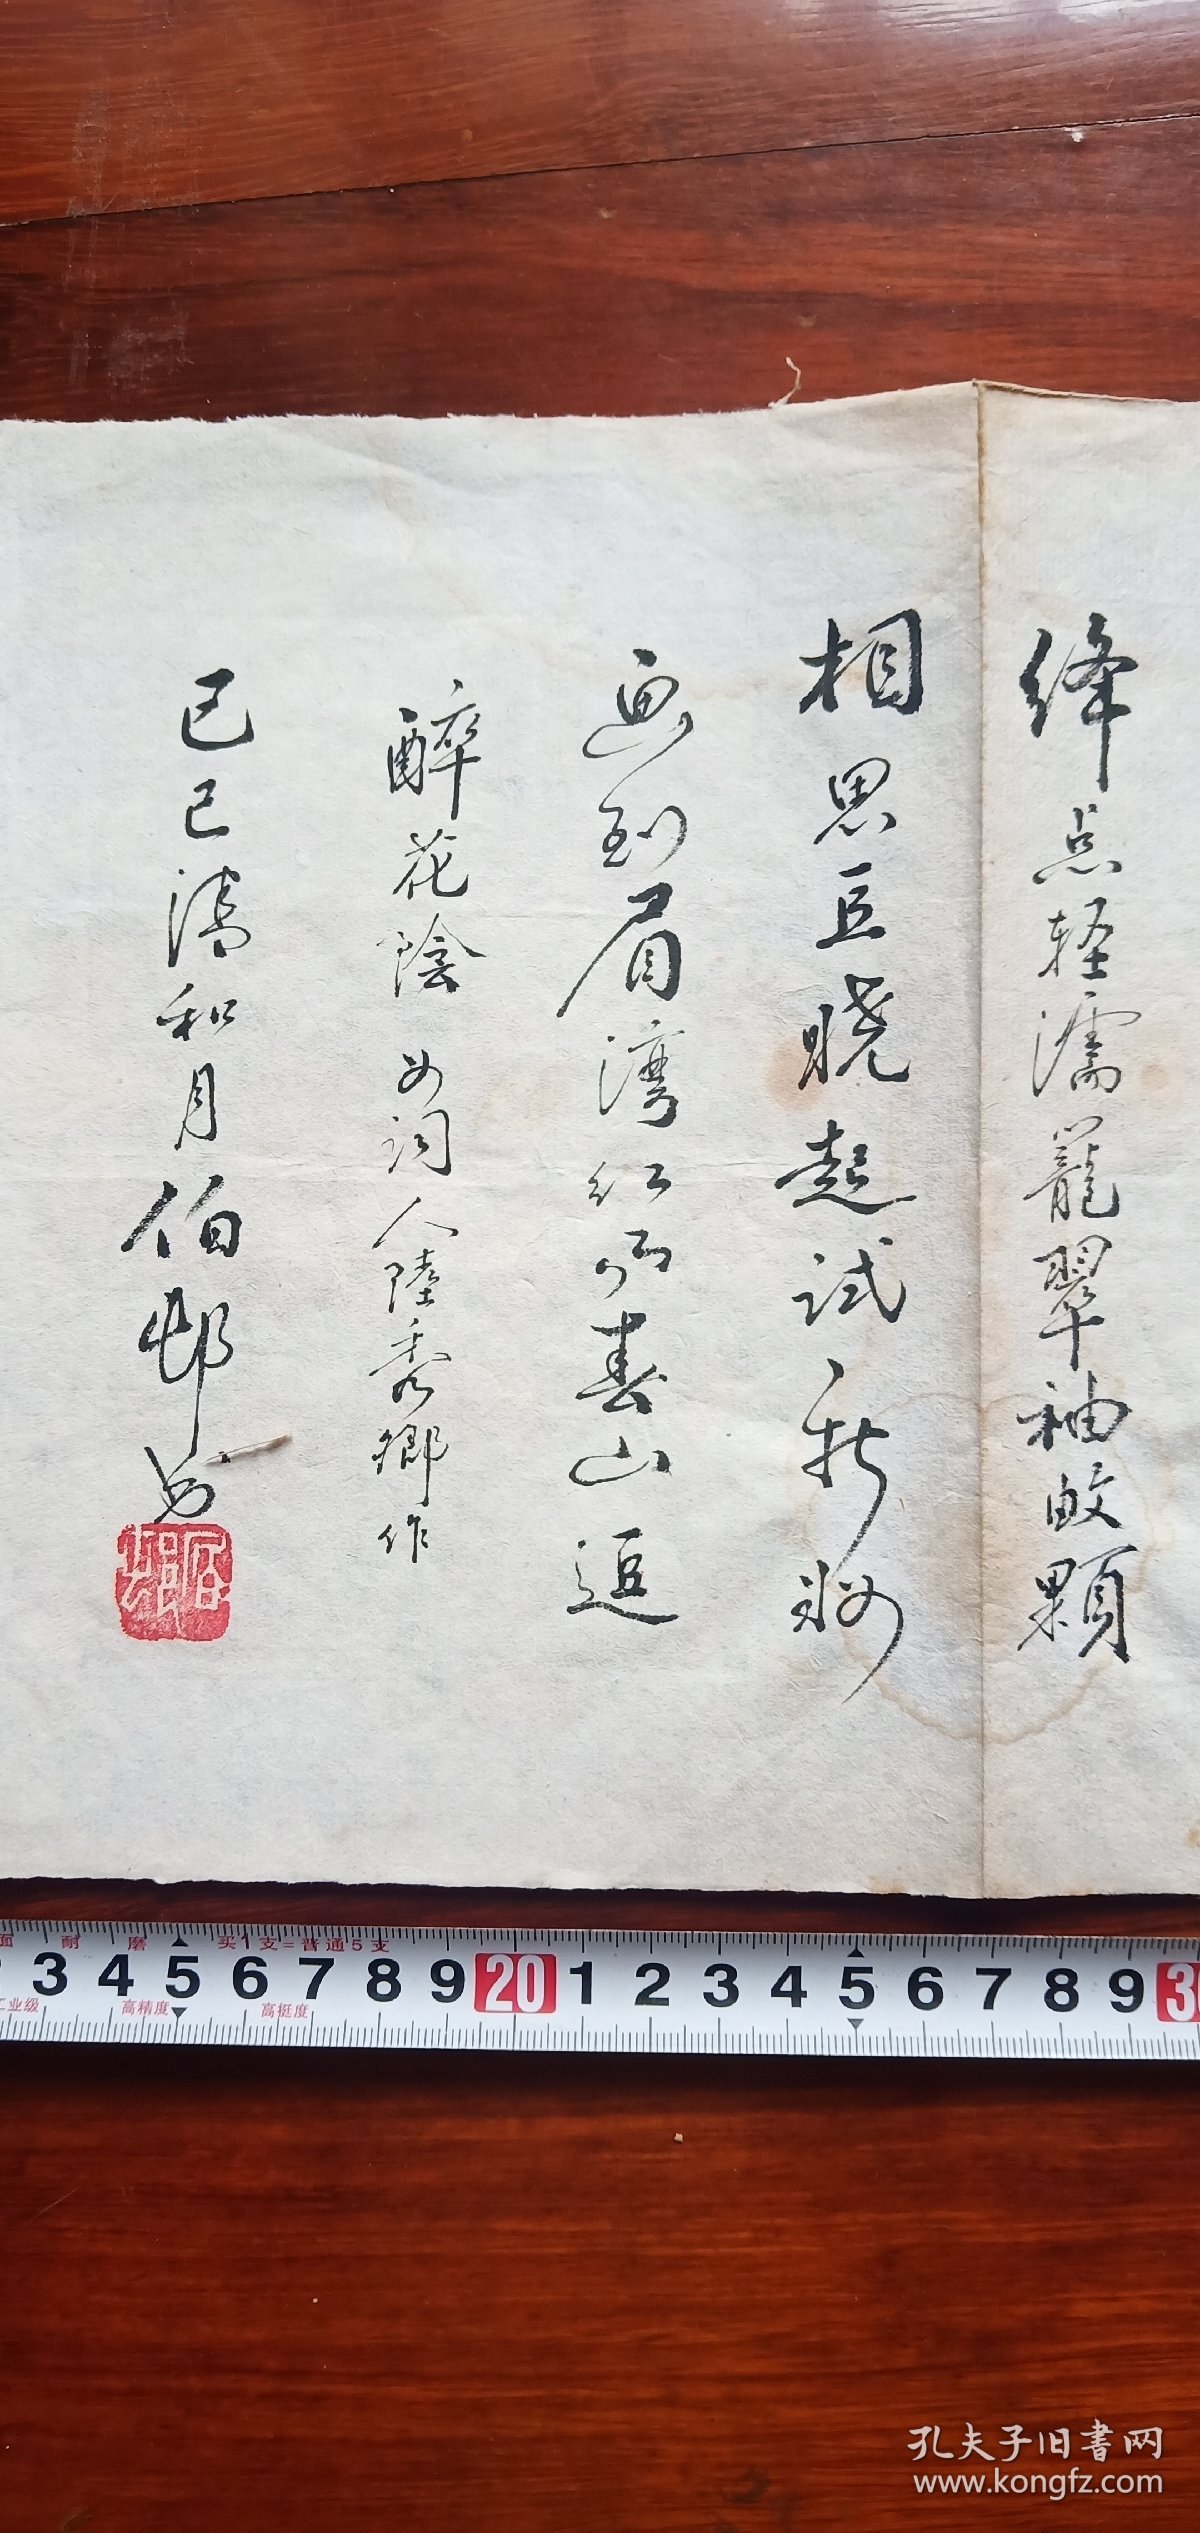 绛点轻濡笼翠袖皎颗
相思豆晓起试新妝
画到眉湾红两春山逗
醉花陰 女词人陸秀卿作
己巳清和月伯邨书
面 耐 磨 买1支=普通5支
3 4 5 6 7 8 9 20 1 2 3 4 5 6 7 8 9 30
工业级 高精度 高挺度
孔夫子旧書网
www.kongfz.com